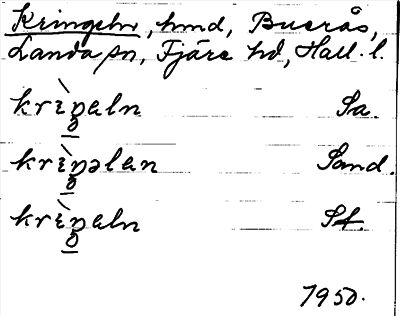 Kringeln, hmd, Buerås,
Landa sn, Fjäre hd, Hall. l.
krìŋeln Sa.
krìŋəlen Sand.
krìŋeln St.
1950.